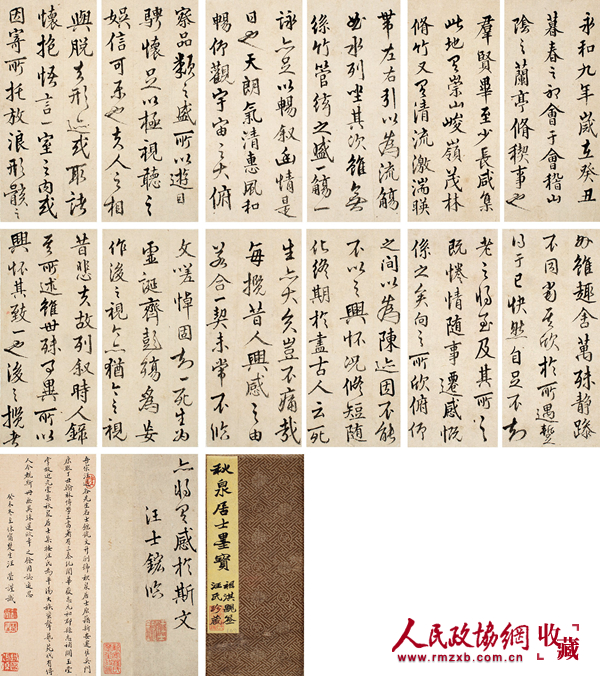 永和九年歲在癸丑
暮春之初會于會稽山
陰之蘭亭脩稧事也
群賢畢至少長咸集
此地有崇山峻嶺茂林
脩竹又有清流激湍暎
帶左右引以為流觴
曲水列坐其次雖無
絲竹管絃之盛一觴一
詠亦足以暢叙幽情是
日也天朗氣清惠風和
暢仰觀宇宙之大俯
察品類之盛所以遊目
騁懷足以極視聽之
娛信可樂也夫人之相
與脫去形迹或取諸
懷抱悟言一室之內或
因寄所托放浪形骸之
外雖趣舍萬殊靜躁
不同當其欣於所遇蹔
得于己快然自足不知
老之將至及其所之
既惓情隨事遷感慨
係之矣向之所欣俯仰
之間以為陳迹因不能
不以之興懷況脩短隨
化終期於盡古人云死
生亦大矣豈不痛哉
每攬昔人興感之由
若合一契未嘗不臨
文嗟悼固知一死生為
虛誕齊彭殤為妄
作後之視今亦猶今之視
昔悲夫故列叙時人錄
其所述雖世殊事異所以
興懷其致一也後之攬者
秋泉居士墨寶
汪氏珍藏
亦將有感於斯文
汪士鋐臨
人民政協網
收藏
www.rmzxb.com.cn